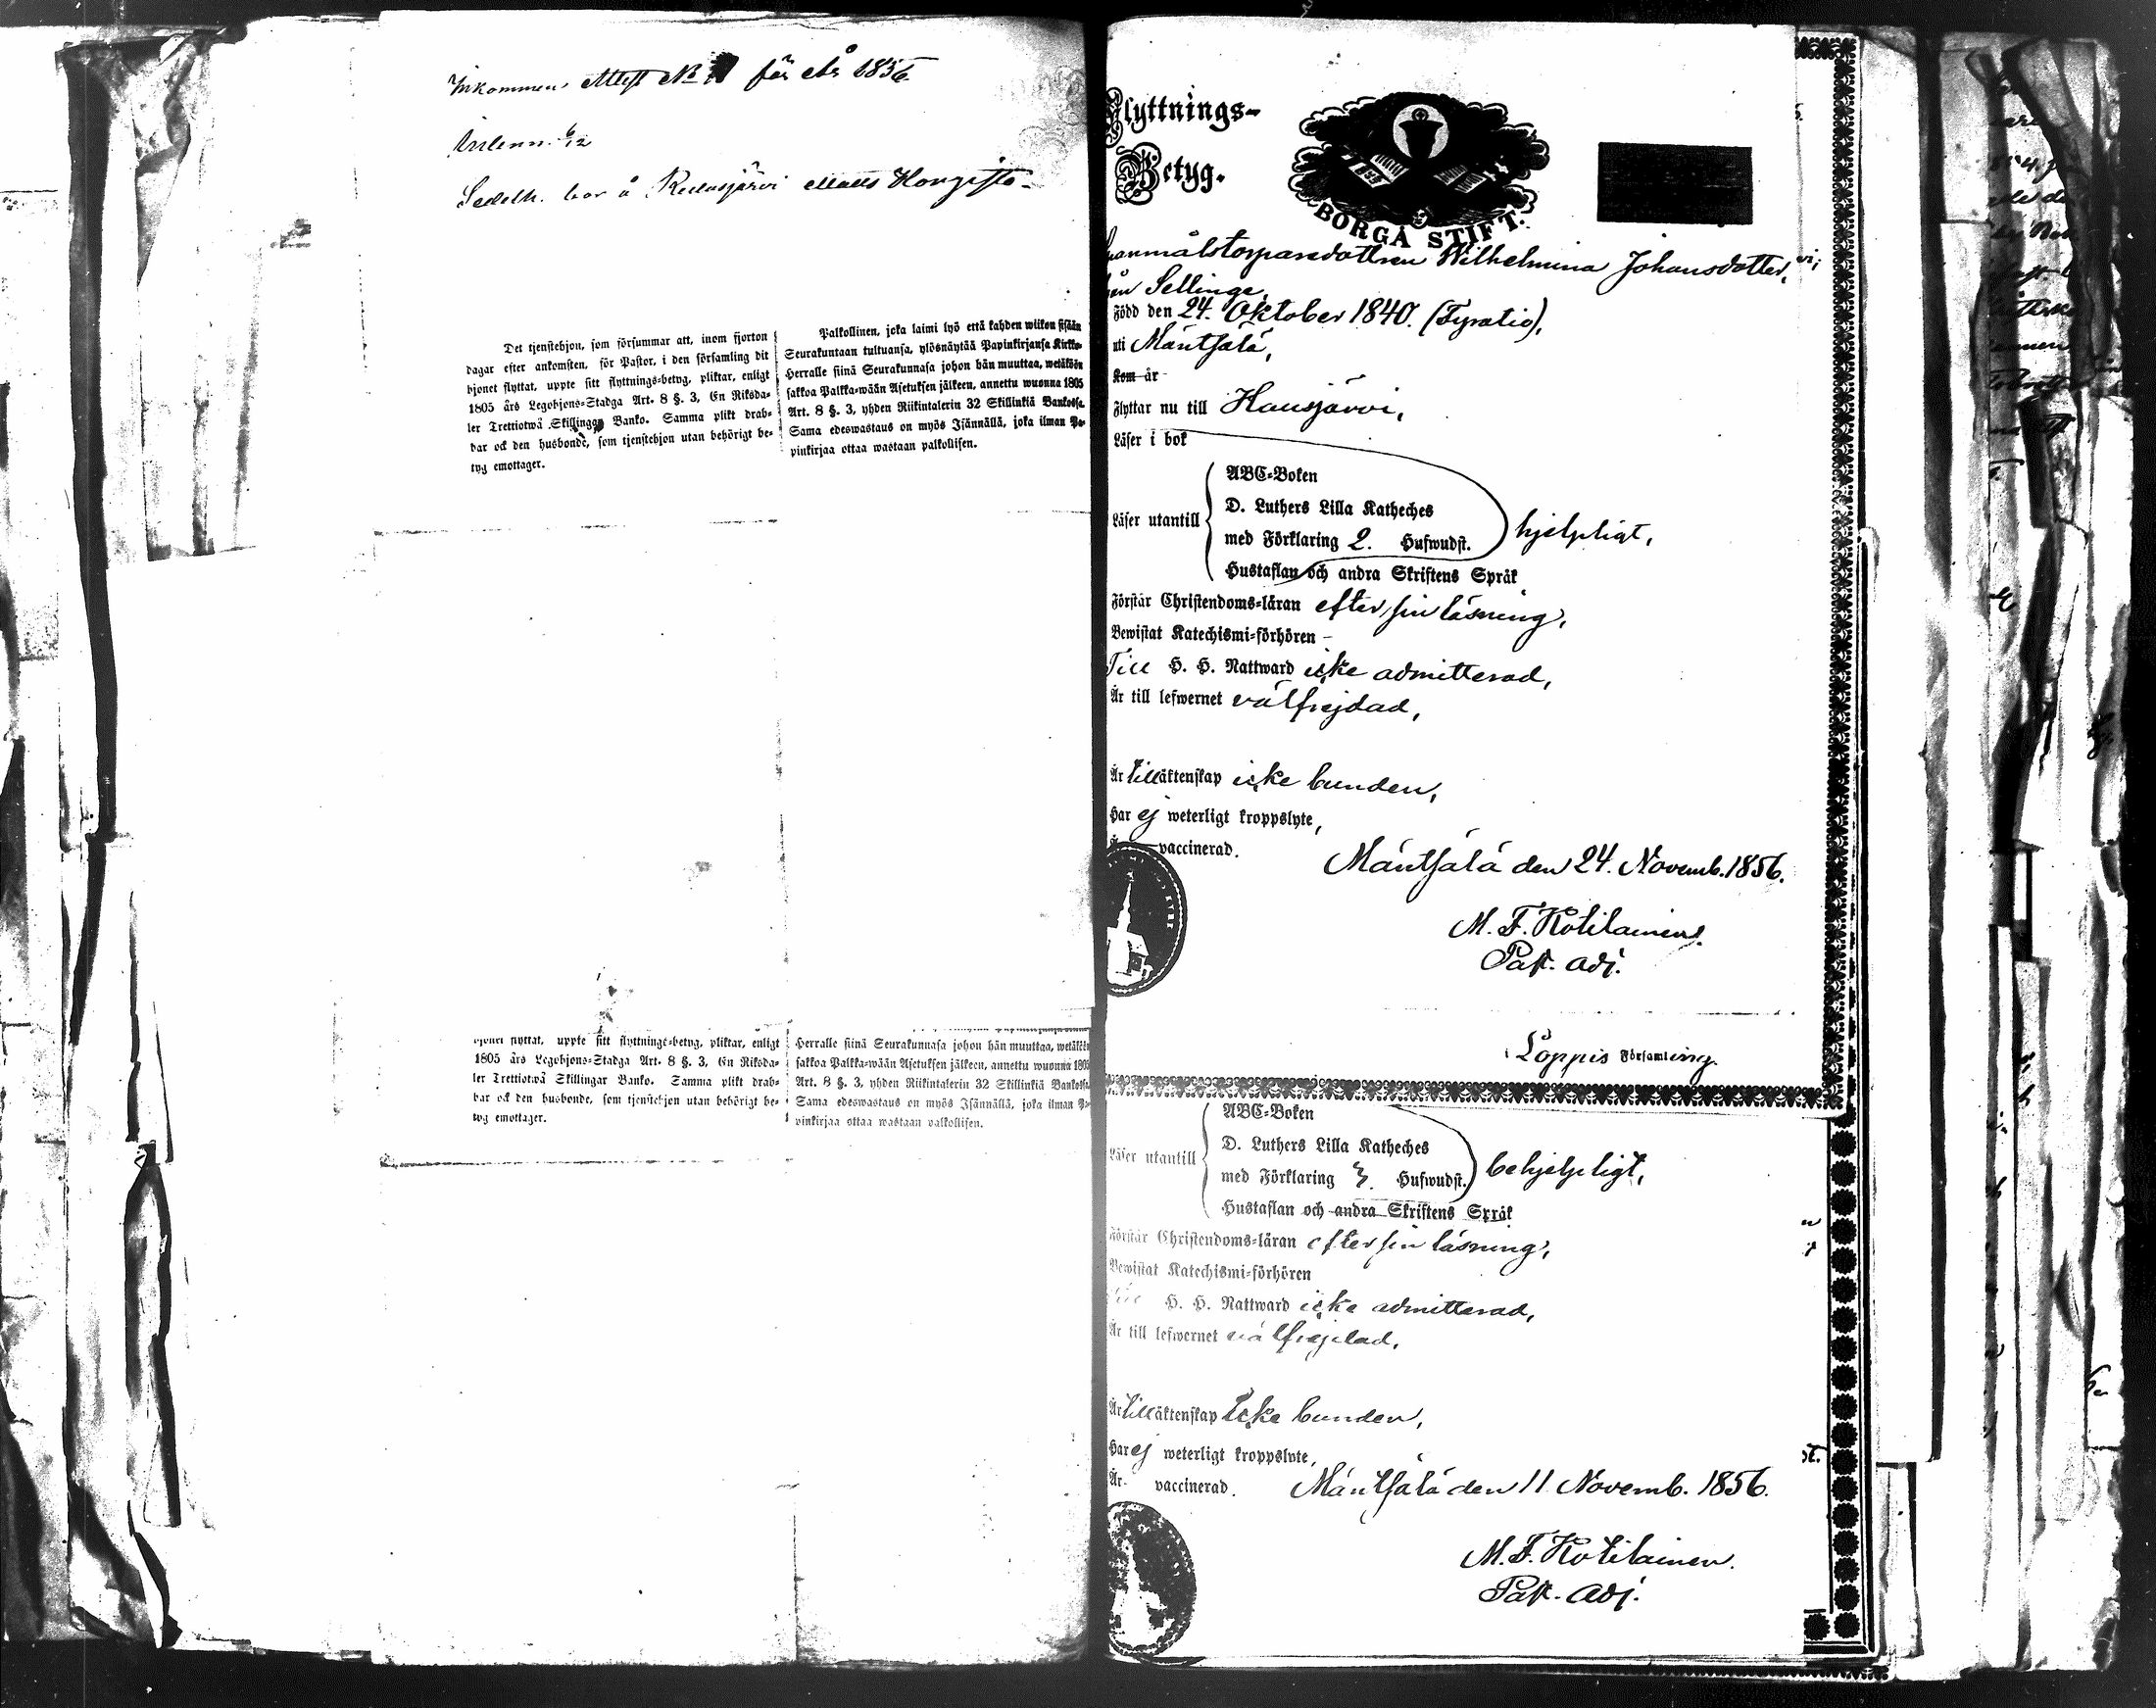 Inkommen Attest No för år 1856
6/12
Sedeln. bor å
Det tjenstehjon, som försummar att, inom fjorton
dagar efter ankomsten, för Pastor, i den församling dit
hjonet flyttat, uppte sitt flyttnings-betyg, pliktar, enligt
1805 års Legohjons-Stadga Art. 8 §. 3, En Riksda-
ler Trettiotwå Skillingar Banko. Samma plikt drab-
bar ock den husbonde, som tjenstehjon utan behörigt be-
tyg emottager.
Palkollinen, joka laimi lyö että kahden wiikon sisään
Seurakuntaan tultuansa, ylösnäytää Papinkirjansa Kirkko-
Herralle siinä Seurakunnasa johon hän muuttaa, wetäköön
sakkoa Palkka-wään Asetuksen jälkeen, annettu wuonna 1805
Art. 8 §. 3, yhden Riikintalerin 32 Skillinkiä Bankossa.
Sama edeswastaus on myös Isännällä, joka ilman Pa-
pinkirjaa ottaa wastaan palkollisen.
hjonet flyttat, uppte sitt flyttnings-betyg, pliktar, enligt
1805 års Legohjons-Stadga Art. 8 §. 3, En Riksda-
ler Trettiotwå Skillingar Banko. Samma plikt drab-
bar ock den husbonde, som tjenstehjon utan behörigt be-
tyg emottager.
Herralle siinä Seurakunnasa johon hän muuttaa, wetäköön
sakkoa Palkka-wään Asetuksen jälkeen, annettu wuonna 1805
Art. 8 §. 3, yhden Riikintalerin 32 Skillinkiä Bankossa.
Sama edeswastaus on myös Isännällä, joka ilman Pa-
pinkirjaa ottaa wastaan palkollisen.
Flyttnings-
Betyg.
BORGÅ STIFT.
Spanmålstorparedottren Wilhelmina Johansdotter,
från Sellinge,
Född den 24. Oktober 1840. (Fyratio),
uti Mäntsälä,
Kom år
Flyttar nu till Hausjärvi,
Läser i bok
ABC-Boken
D. Luthers Lilla Katheches
Läser utantill
med Förklaring 2. Hufwudst. hjelpligt,
Hustaflan och andra Skriftens Språk
Förstår Christendoms-läran efter sin läsning,
Bewistat Katechismi-förhören –
Till H. H. Nattward icke admitterad,
Är till lefwernet välfrejdad,
Är till äktenskap icke bunden,
Har ej weterligt kroppslyte,
vaccinerad.
Mäntsälä den 24. Novemb. 1856.
M. F. Kotilainen.
Past. Adj.
Loppis Församling.
ABC-Boken
D. Luthers Lilla Katheches
Läser utantill
med Förklaring 3. Hufwudst. behjelpligt,
Hustaflan och andra Skriftens Språk
Förstår Christendoms-läran efter sin läsning,
Bewistat Katechismi-förhören
Till H. H. Nattward icke admitterad,
Är till lefwernet välfrejdad,
Är till äktenskap icke bunden,
Har ej weterligt kroppslyte,
Är vaccinerad. Mäntsälä den 11 Novemb. 1856.
M. F. Kotilainen.
Past. Adj.